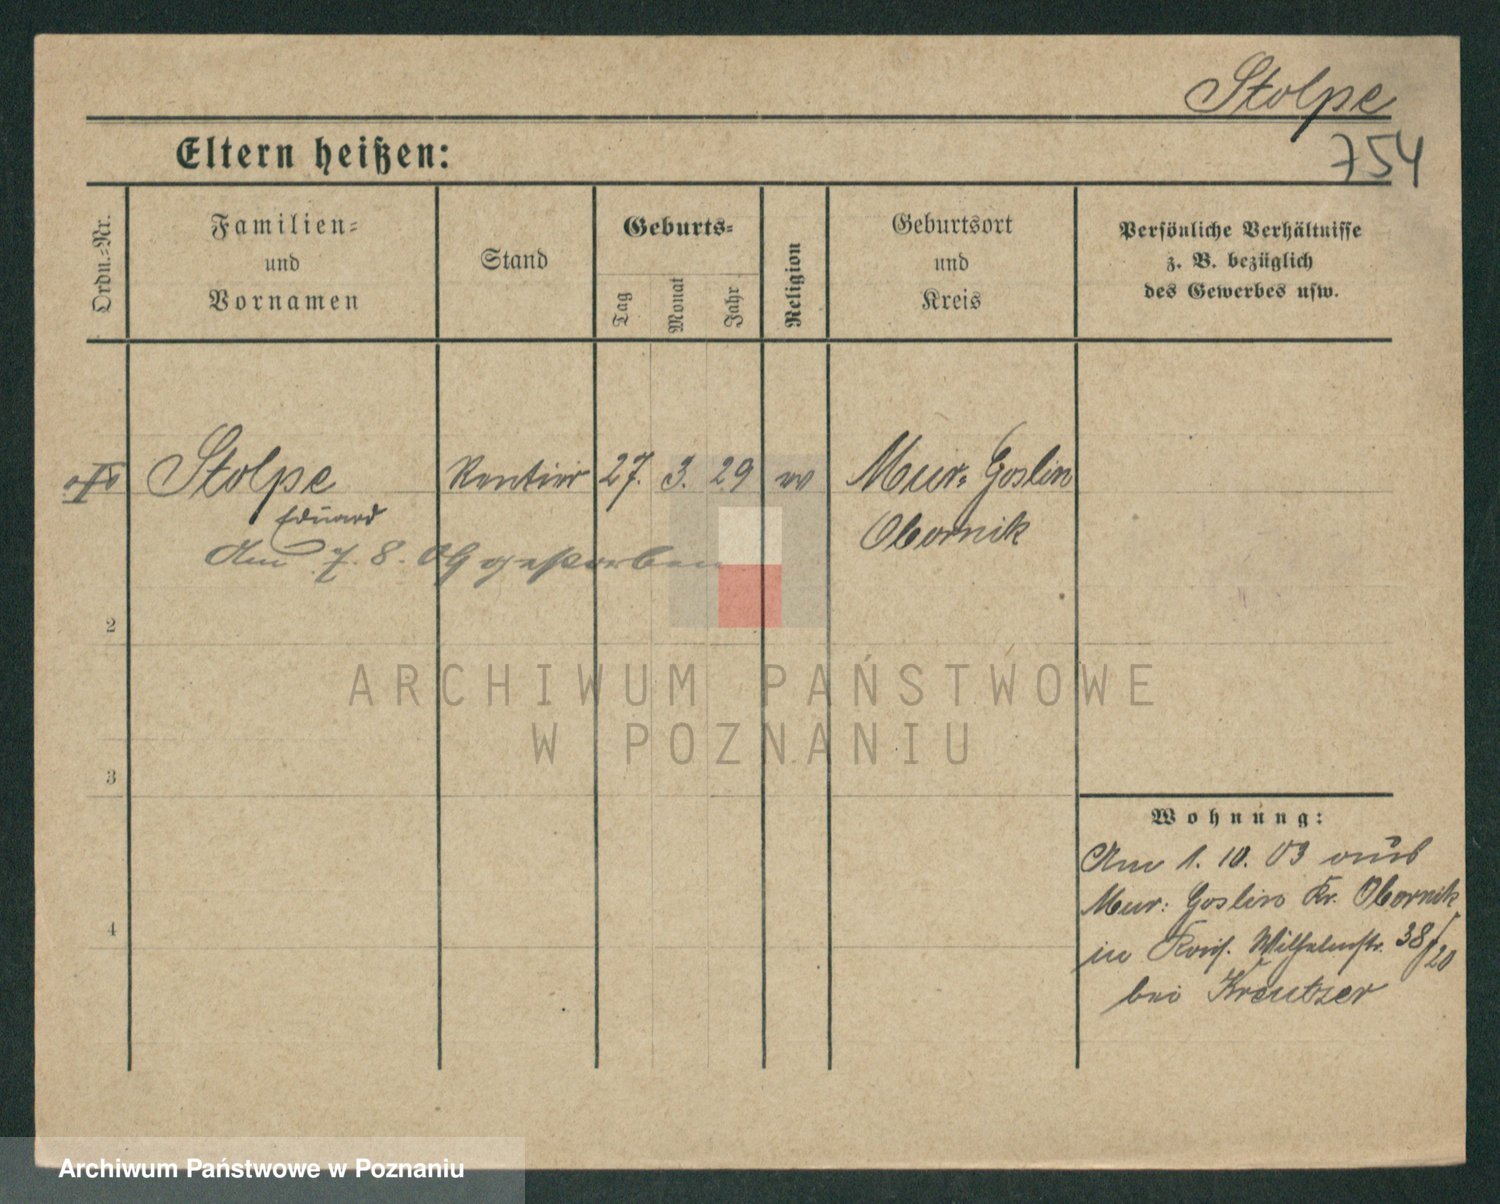 Stolpe
754
Eltern heißen:
Ordn.-Nr.
Familien-
und
Vornamen
Stand
Geburts-
Tag
Monat
Jahr
Religion
Geburtsort
und
Kreis
Persönliche Verhältnisse
z. B. bezüglich
des Gewerbes usw.
Stolpe Rentier 27. 3. 29 Mur: Goslin
Eduard
Obornik
Am 7. 8. 09 gestorben
2
3
4
ARCHIWUM PAŃSTWOWE
W POZNANIU
Wohnung:
Am 1. 10. 03 aus
Mur: Goslin Kr. Obornik
in Wilhelmstr. 38/20
bei Kreutzer
Archiwum Państwowe w Poznaniu